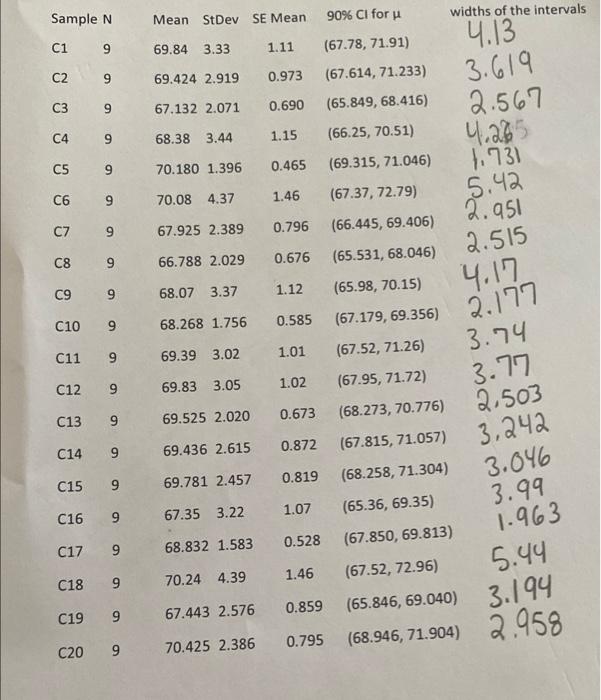 Sample N Mean StDev SE Mean 90% CI for μ widths of the intervals
C1 9 69.84 3.33 1.11 (67.78, 71.91) 4.13
C2 9 69.424 2.919 0.973 (67.614, 71.233) 3.619
C3 9 67.132 2.071 0.690 (65.849, 68.416) 2.567
C4 9 68.38 3.44 1.15 (66.25, 70.51)
C5 9 70.180 1.396 0.465 (69.315, 71.046) 1.731
C6 9 70.08 4.37 1.46 (67.37, 72.79) 5.42
C7 9 67.925 2.389 0.796 (66.445, 69.406) 2.951
C8 9 66.788 2.029 0.676 (65.531, 68.046) 2.515
C9 9 68.07 3.37 1.12 (65.98, 70.15) 4.17
C10 9 68.268 1.756 0.585 (67.179, 69.356) 2.177
C11 9 69.39 3.02 1.01 (67.52, 71.26) 3.74
C12 9 69.83 3.05 1.02 (67.95, 71.72) 3.77
C13 9 69.525 2.020 0.673 (68.273, 70.776) 2.503
C14 9 69.436 2.615 0.872 (67.815, 71.057) 3.242
C15 9 69.781 2.457 0.819 (68.258, 71.304) 3.046
C16 9 67.35 3.22 1.07 (65.36, 69.35) 3.99
C17 9 68.832 1.583 0.528 (67.850, 69.813) 1.963
C18 9 70.24 4.39 1.46 (67.52, 72.96) 5.44
C19 9 67.443 2.576 0.859 (65.846, 69.040) 3.194
C20 9 70.425 2.386 0.795 (68.946, 71.904) 2.958